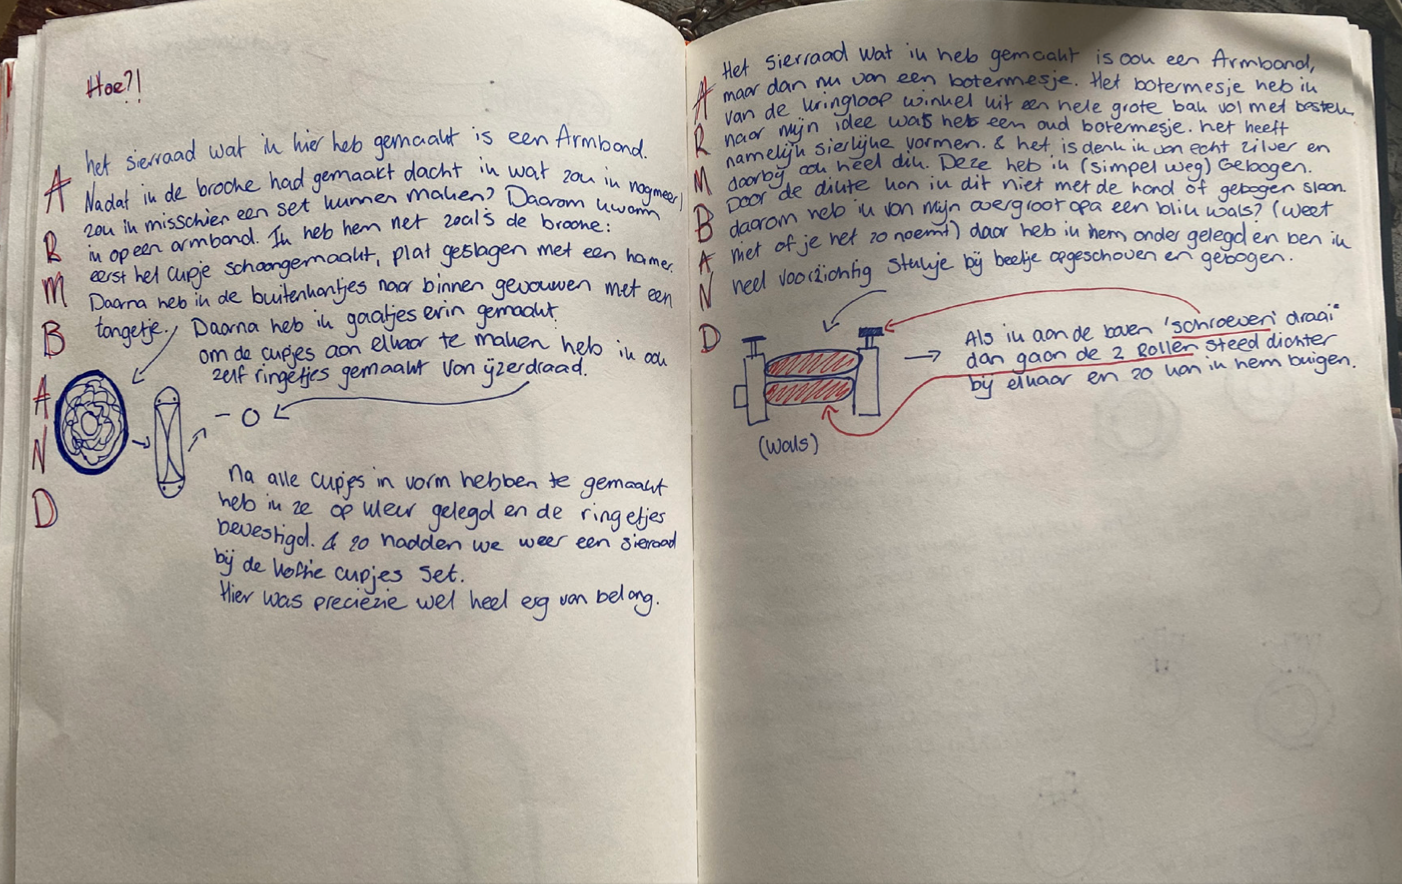 Hoe?!
het sierraad wat ik hier heb gemaakt is een Armband.
Nadat ik de broche had gemaakt dacht ik wat zou ik nogmeer,
zou ik misschien een set kunnen maken? Daarom kwam
ik op een armband. Ik heb hem net zoals de broche:
eerst het cupje schoongemaakt, plat geslagen met een hamer.
Daarna heb ik de buitenkantjes naar binnen gevouwen met een
tangetje. Daarna heb ik gaatjes erin gemaakt.
om de cupjes aan elkaar te maken heb ik ook
zelf ringetjes gemaakt van ijzerdraad.
ARMBAND
Na alle cupjes in vorm hebben te gemaakt
heb ik ze op kleur gelegd en de ringetjes
bevestigd. & zo hadden we weer een sieraad
bij de koffie cupjes set.
Hier was preciezie wel heel erg van belang.
Het sierraad wat ik heb gemaakt is ook een Armband,
maar dan nu van een botermesje. Het botermesje heb ik
van de kringloop winkel uit een hele grote bak vol met bestek,
naar mijn idee was het een oud botermesje. het heeft
namelijk sierlijke vormen. & het is denk ik van echt zilver en
daarbij ook heel dik. Deze heb ik (simpel weg) Gebogen.
Door de dikte kon ik dit niet met de hand of gebogen slaan
daarom heb ik van mijn overgroot opa een blik wals? (weet
niet of je het zo noemt) daar heb ik hem onder gelegd en ben ik
heel voorzichtig stukje bij beetje opgeschoven en gebogen.
ARMBAND
Als ik aan de boven 'schroeven' draai
dan gaan de 2 Rollen steed dichter
bij elkaar en zo kan ik hem buigen.
(wals)